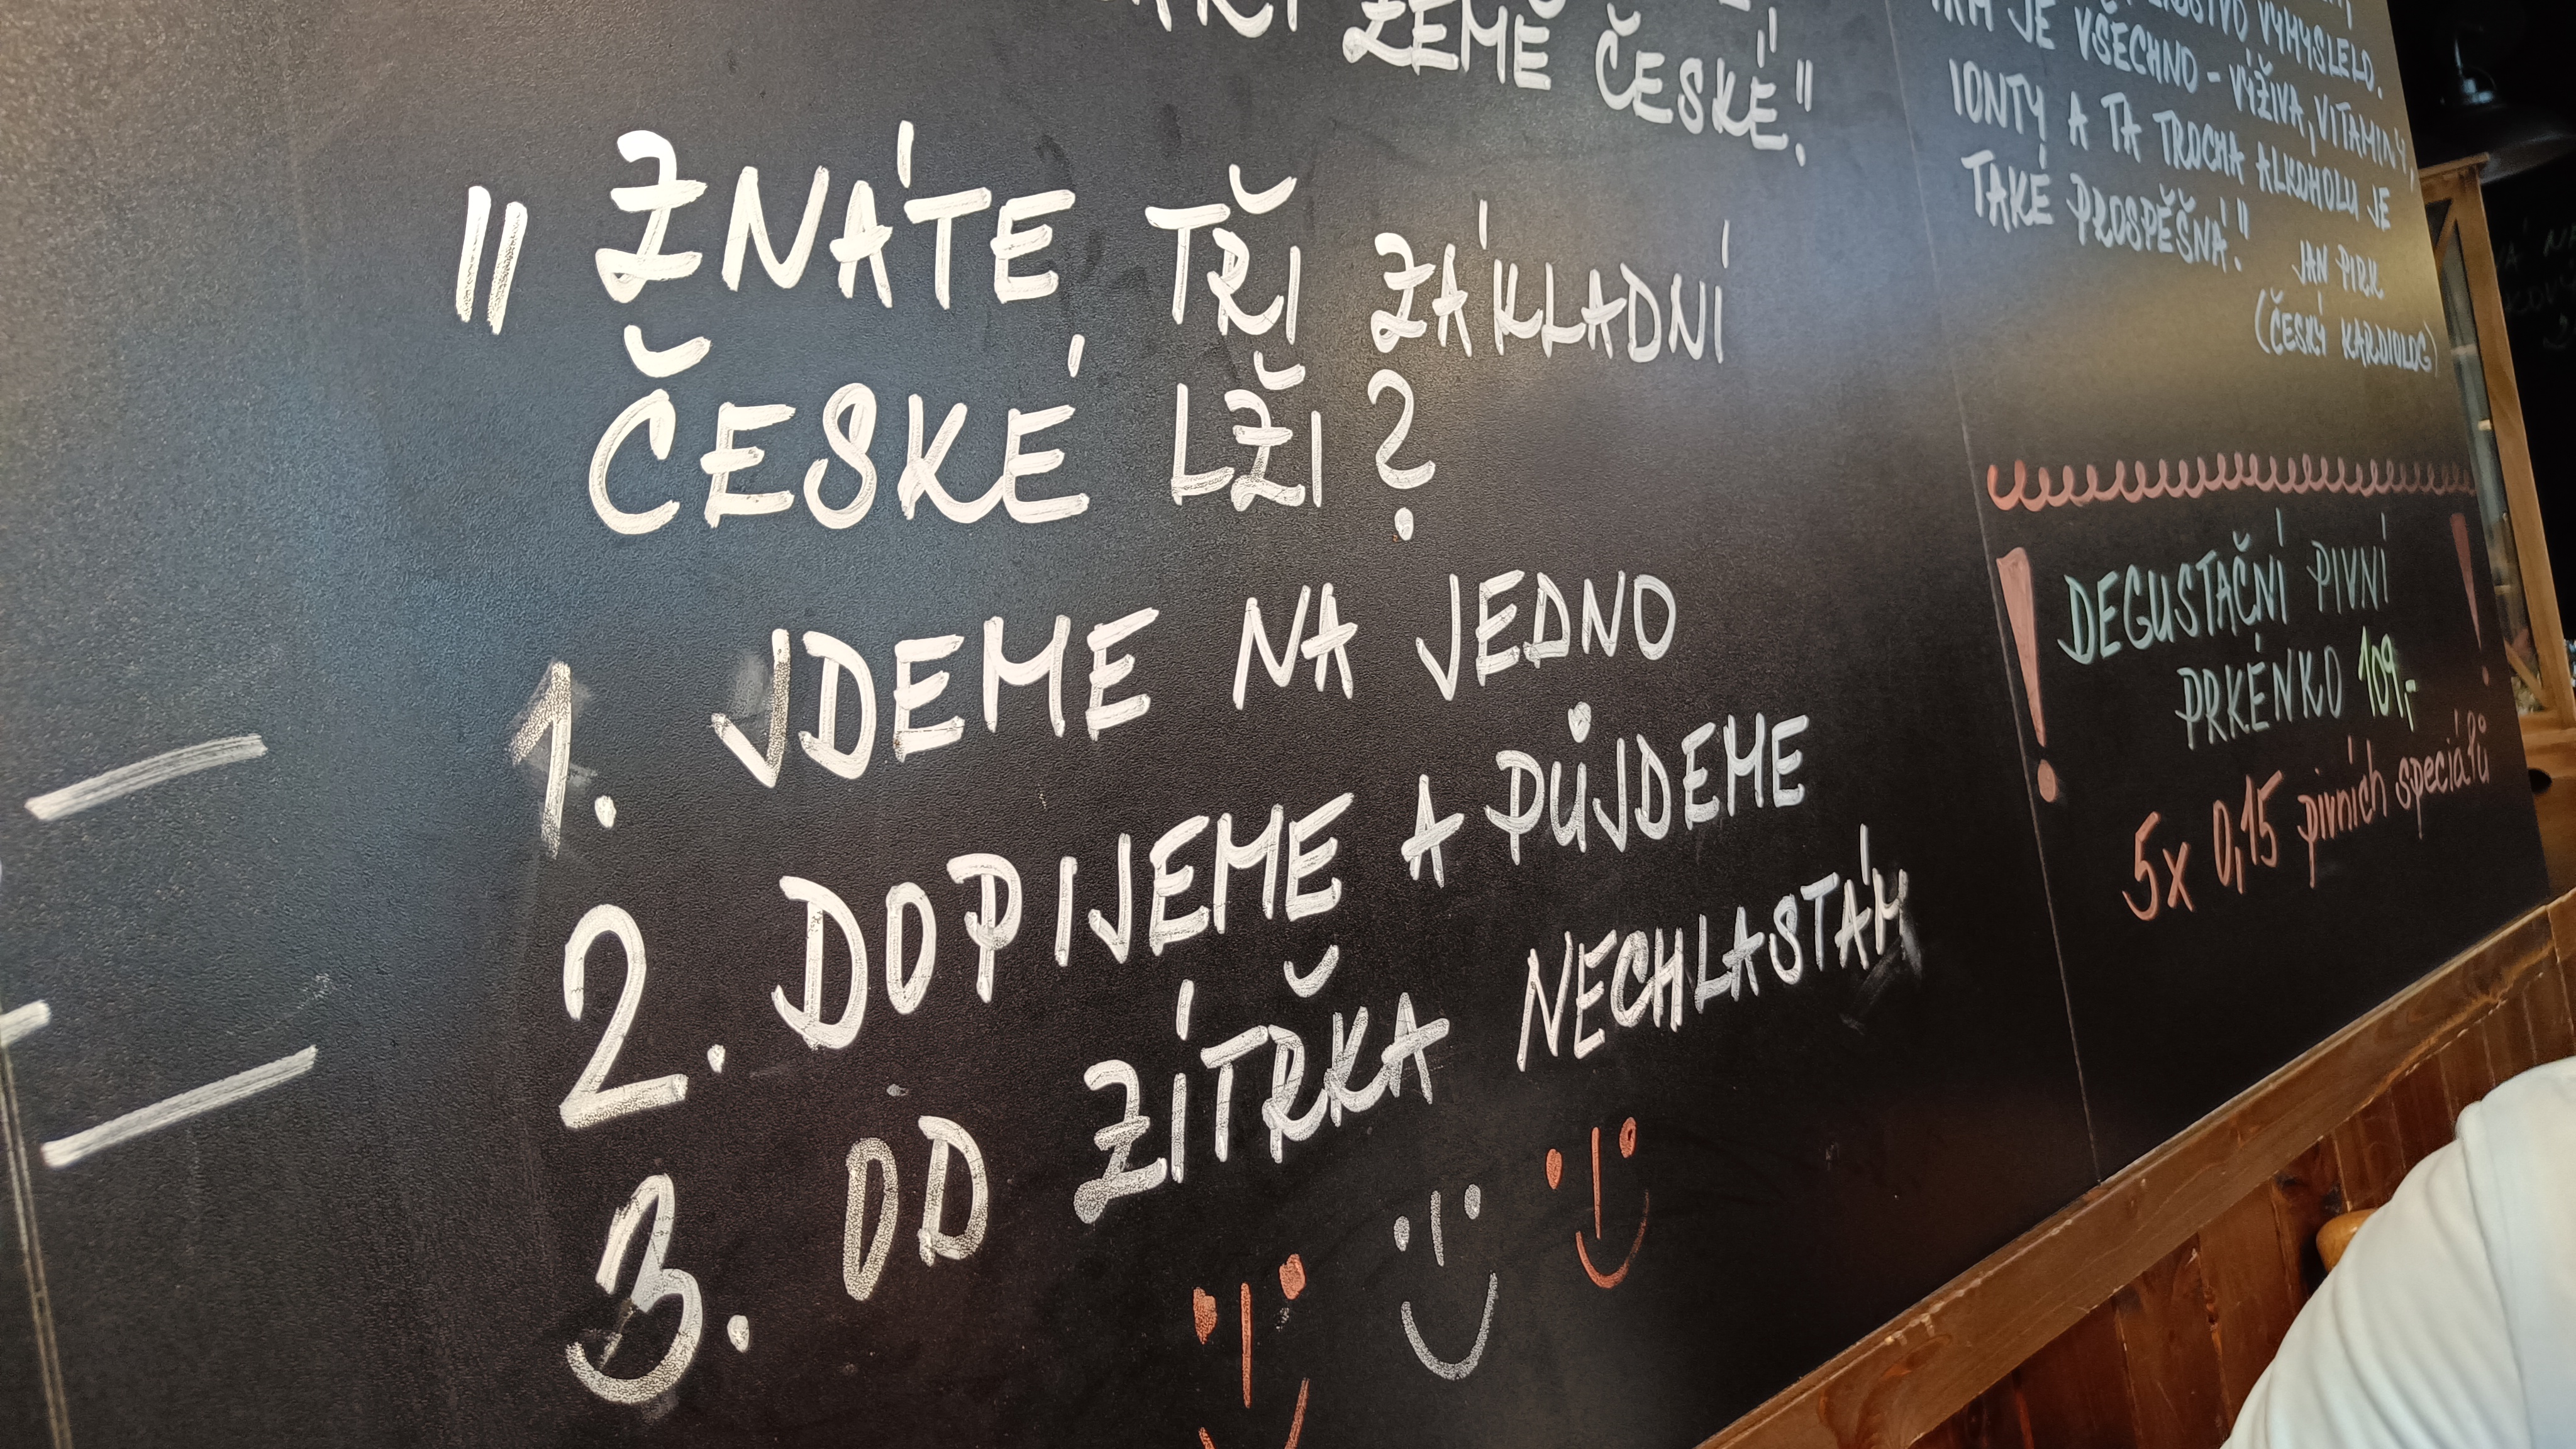 ZEMĚ ČESKÉ."
"ZNÁTE TŘI ZÁKLADNÍ
ČESKÉ LŽI?
1. JDEME NA JEDNO
2. DOPIJEME A PŮJDEME
3. OD ZÍTŘKA NECHLASTÁM
VYMYSLELO.
JE VŠECHNO - VÝŽIVA, VITAMINY,
IONTY A TA TROCHA ALKOHOLU JE
TAKÉ PROSPĚŠNÁ."
JAN PIRK
(ČESKÝ KARDIOLOG)
! DEGUSTAČNÍ PIVNÍ !
PRKÉNKO 109,-
5x 0,15 pivních speciálů